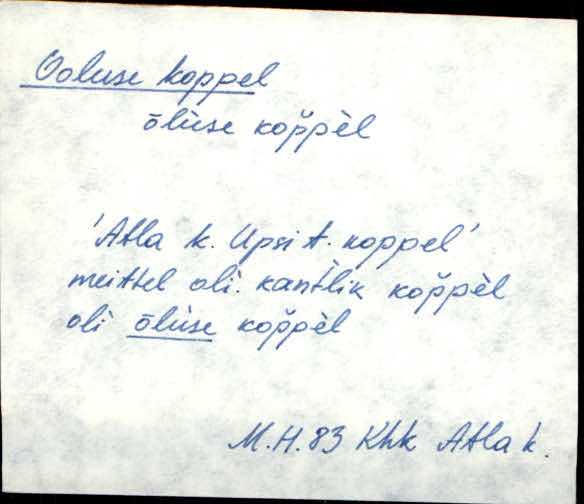 Ooluse koppel
ōlùse kop̌pèl
'Atla k. Upsi t. koppel'
meittel oli kant̀lik kop̌pèl
oli ōlùse kop̌pèl
M.H. 83 Khk Atla k.